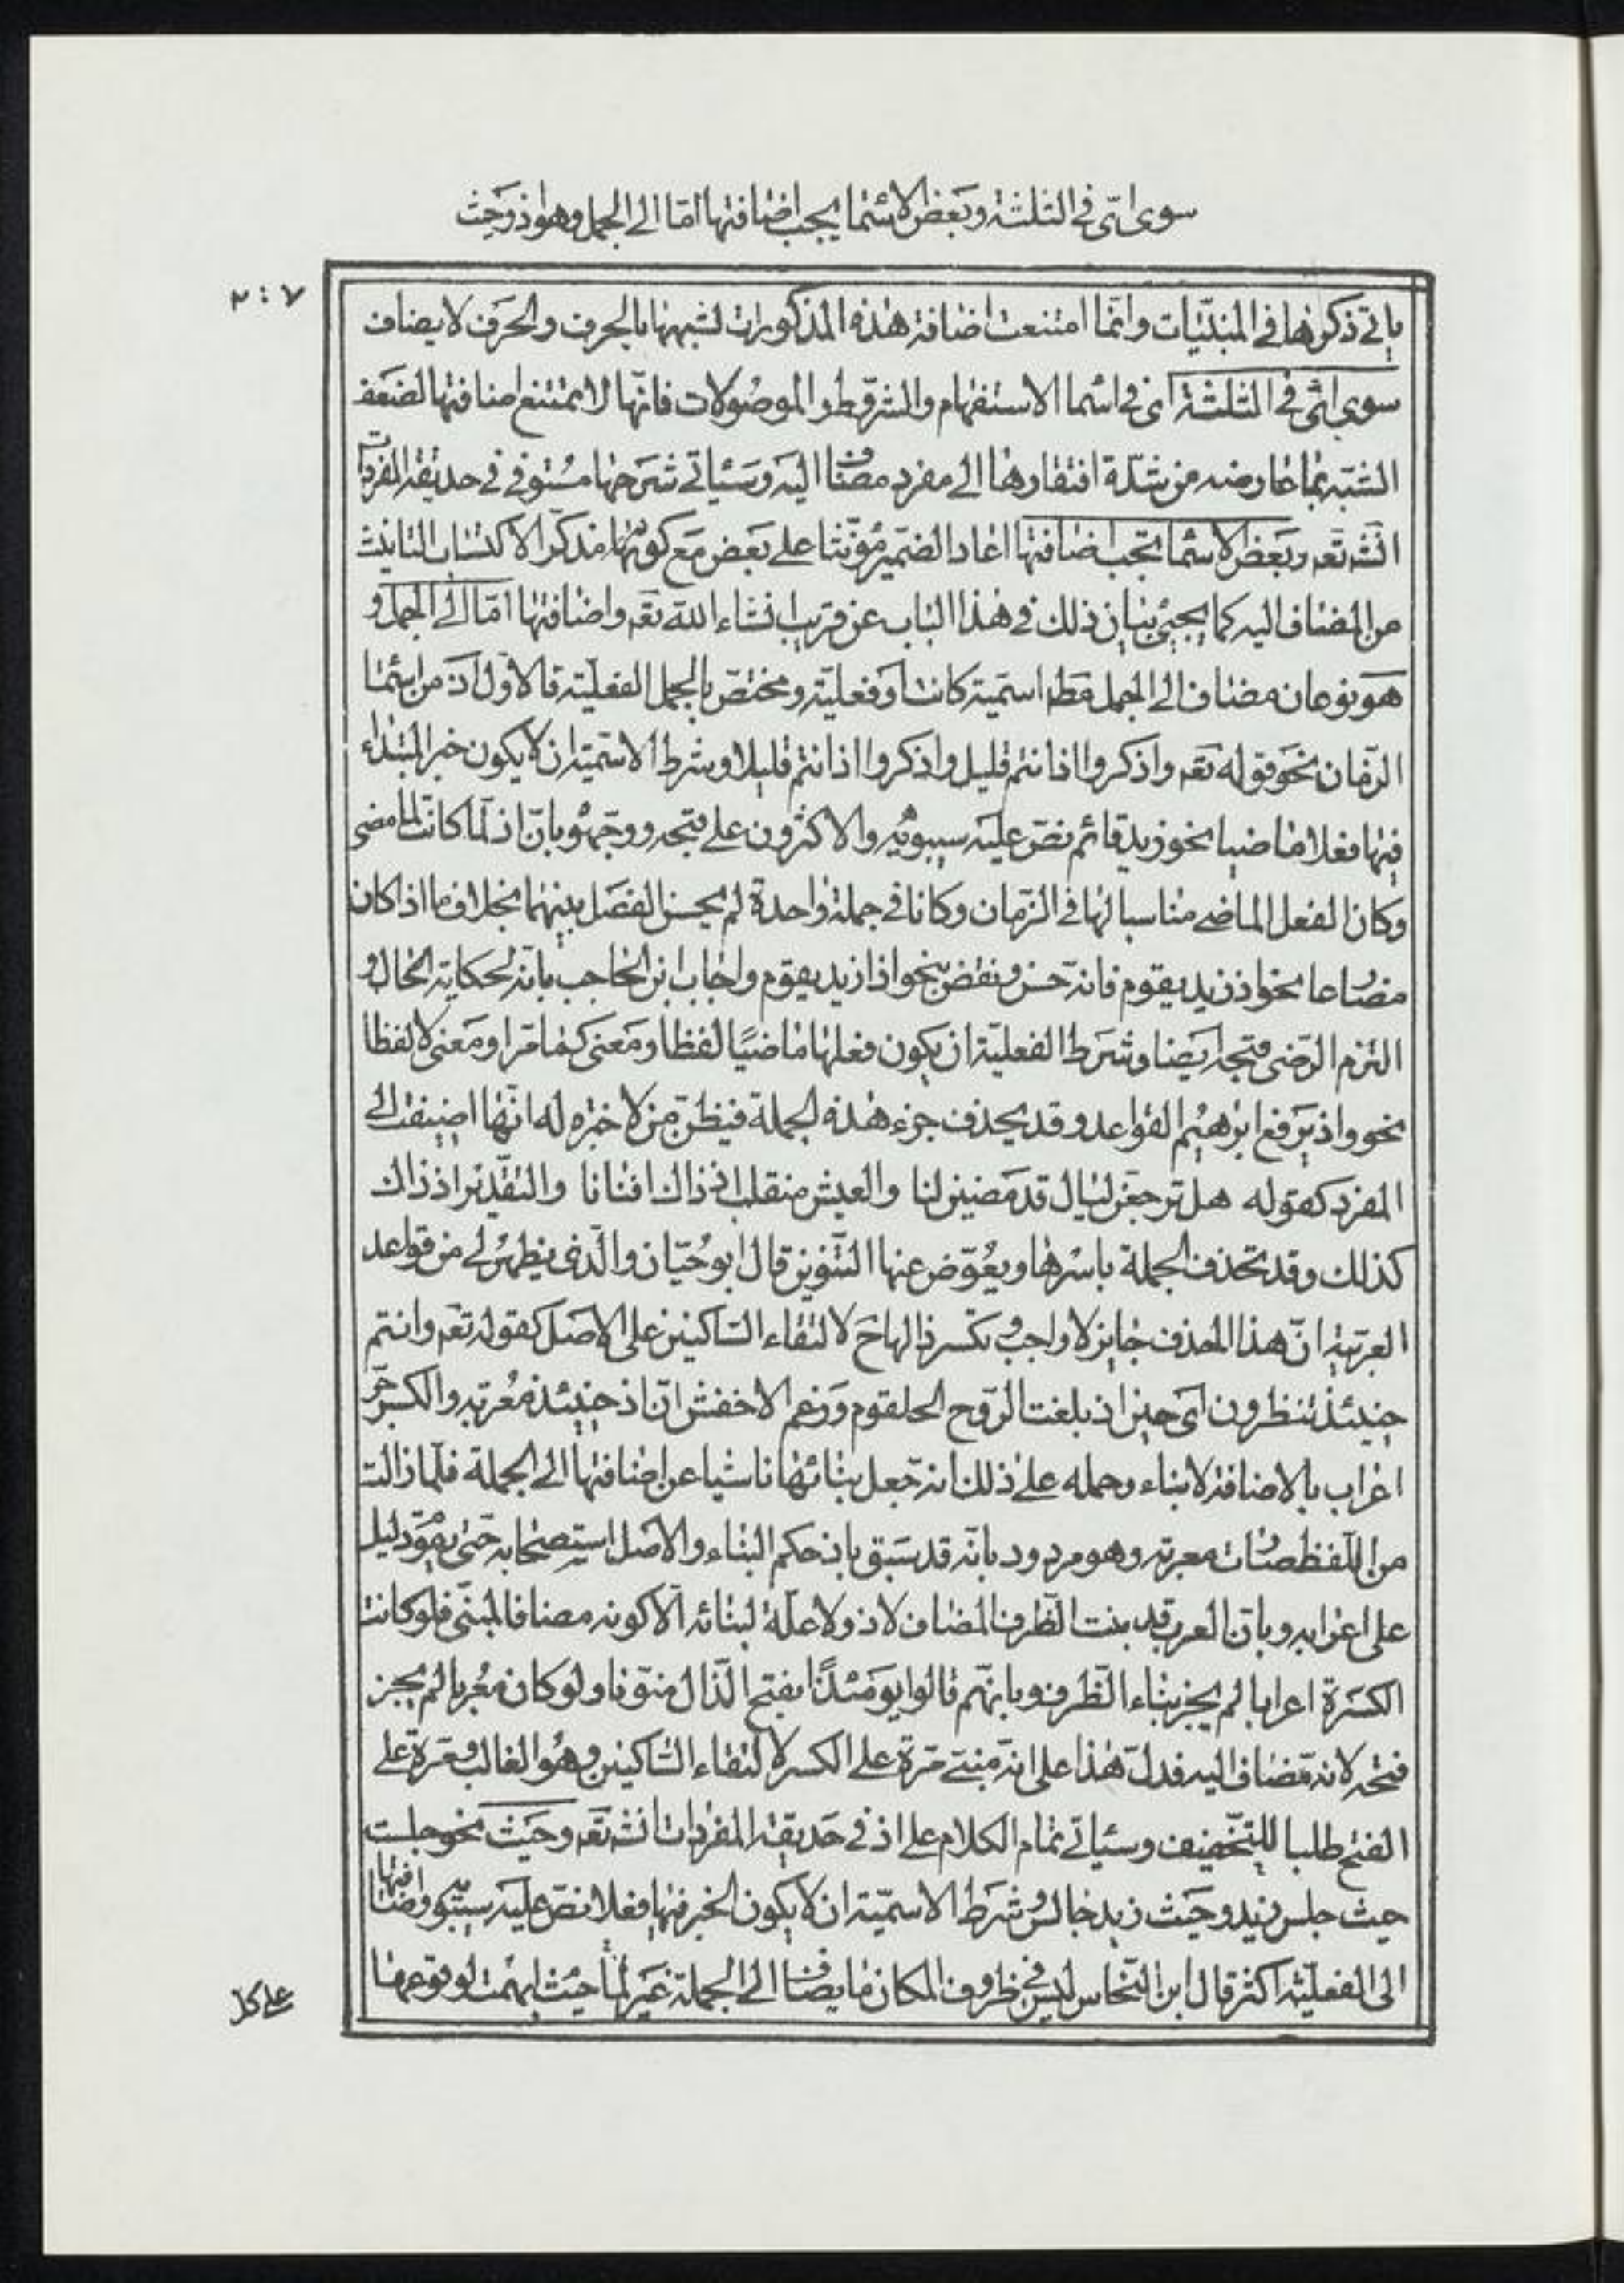 سوى اىّ فى الثلثة وبعض الاسماء يجب اضافتها امّا الى الجمل وهو اذ وحيث
٢٠٧
ياتى ذكرها فى المبنيّات وانّما امتنعت اضافة هذه المذكورات لشبهها بالحرف والحرف لا يضاف
سوى اىّ فى الثلثة اى فى اسماء الاستفهام والشرط والموصولات فانّها لا تمتنع اضافتها لضعف
الشبه بما عارضه من شدّة افتقارها الى مفرد مضاف اليه وسياتى شرحها مستوفى فى حديقة المفردات
انشه تعه وبعض الاسماء تجب اضافتها اعاد الضمير مؤنّثا على بعض مع كونها مذكّرا لاكتساب التانيث
من المضاف اليه كما يجيئ بيان ذلك فى هذا الباب عن قريب انشاء الله تعه واضافتها امّا الى الجمل و
هو نوعان مضاف الى الجمل مطه اسميّة كانت او فعليّة ومختصّ بالجمل الفعليّة فالاوّل اذ من اسماء
الزمان نحو قوله تعه واذكروا اذ انتم قليل واذكروا اذ انتم قليلا وشرط الاسميّة ان لا يكون خبر المبتداء
فيها فعلا ماضيا نحو زيد قائم نصّ عليه سيبويه والاكثرون على قبحه ووجّهوه بانّ اذ لمّا كانت لما مضى
وكان الفعل الماضى مناسبا لها فى الزمان وكانا فى جملة واحدة لم يحسن الفصل بينهما بخلاف ما اذا كان
مضارعا نحو اذ زيد يقوم فانّه حسن ونقض بنحو اذا زيد يقوم واجاب ابن الحاجب بانّه لحكاية الحال و
التزم الرضى قبحه ايضا وشرط الفعليّة ان يكون فعلها ماضيًا لفظا ومعنى كما مرّ او معنى لا لفظا
نحو واذ يرفع ابرهيم القواعد وقد يحذف جزء هذه الجملة فيظنّ من لا خبره له انّها اضيفت الى
المفرد كقوله هل ترجعنّ ليال قد مضين لنا والعيش منقلب اذ ذاك افنانا والتقدير اذ ذاك
كذلك وقد تحذف الجملة باسرها ويعوّض عنها التنوين قال ابو حيّان والّذى يظهر لى من قواعد
العربيّة انّ هذا الحذف جايز لا واجب وتكسر ذالها ح لالتقاء الساكنين على الاصل كقوله تعه وانتم
حينئذ تنظرون اى حين اذ بلغت الروح الحلقوم وزعم الاخفش انّ اذ حينئذ معربة والكسر جرّ
اعراب بالاضافة لا بناء وحمله على ذلك انه جعل بنائها ناشيا عن اضافتها الى الجملة فلمّا زالت
من اللّفظ صارت معربة وهو مردود بانّه قد سبق باذ حكم البناء والاصل استصحابه حتى يقوم دليل
على اعرابه وبانّ العرب قد بنت الظرف المضاف لاذ ولا علّة لبنائه الّا كونه مضافا لمبنىّ فلو كانت
الكسرة اعرابا لم يجز بناء الظرف وبانهّم قالوا يومئذًا بفتح الذّال منوّنا ولو كان معربا لم يجز
فتحه لانه مضاف اليه فدلّ هذا على انه مبنىّ مرّة على الكسر لالتقاء الساكنين وهو الغالب ومرة على
الفتح طلبا للتخفيف وسياتى تمام الكلام على اذ فى حديقة المفردات انشه تعه وحيث نحو جلست
حيث جلس زيد وحيث زيد جالس وشرط الاسميّة ان لا يكون الخبر فيها فعلا نصّ عليه سيبويه واضافتها
الى الفعليّة اكثر قال ابن النحاس ليس فى ظروف المكان ما يضاف الى الجملة غير حيث لمّا ابهمت لوقوعها
على كل